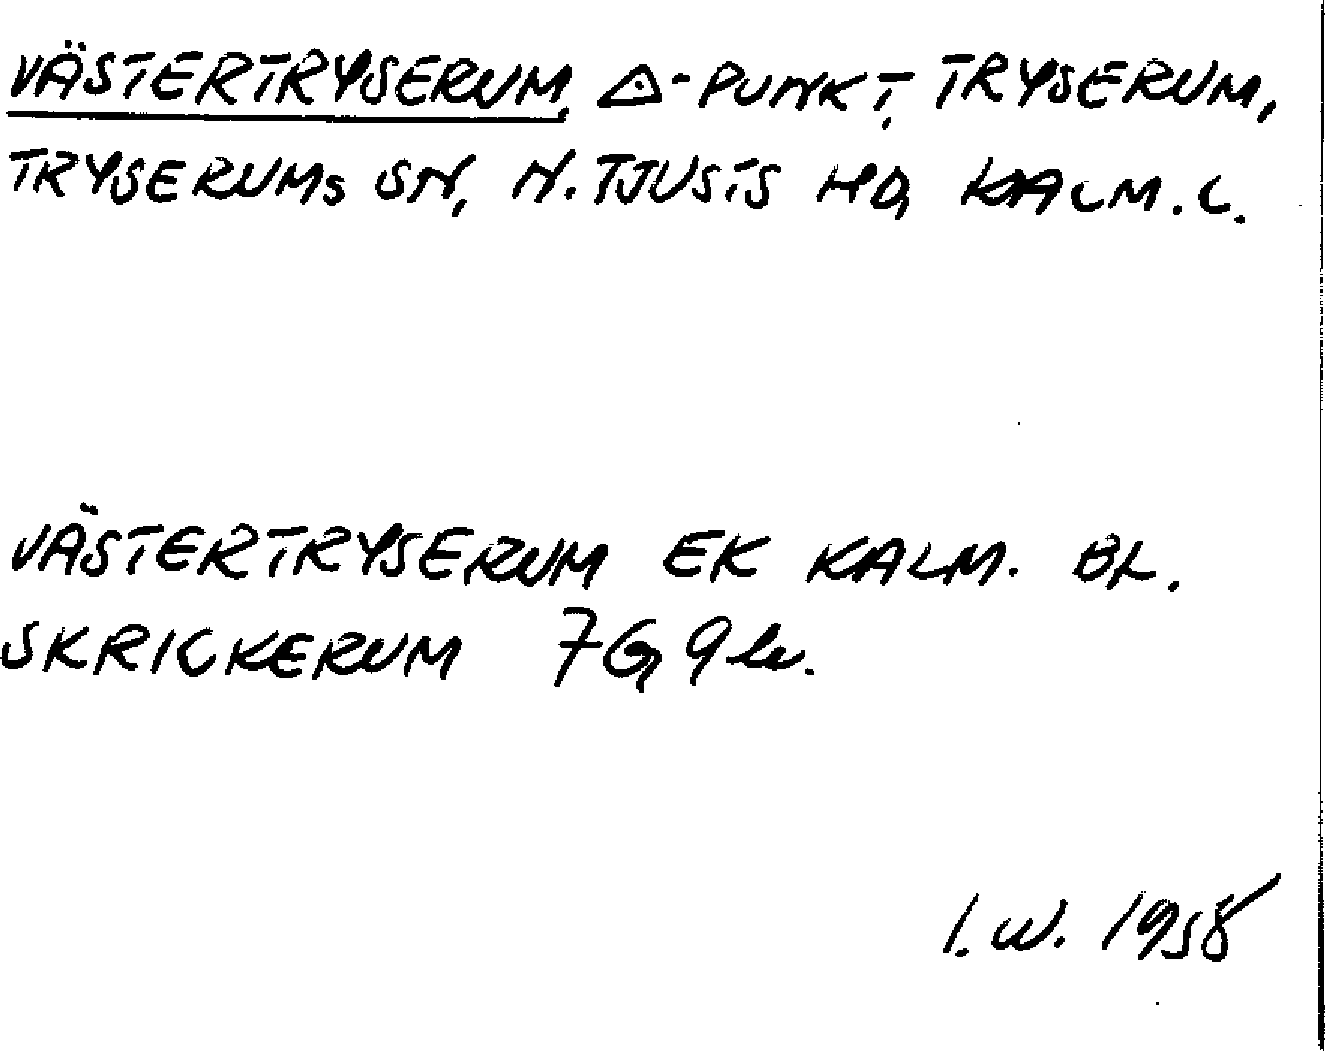 VÄSTERTRYSERUM, △-PUNKT, TRYSERUM,
TRYSERUMs SN, N. TJUSTS HD, KALM. L.
VÄSTERTRYSERUM EK KALM. BL.
SKRICKERUM 7G 9b.
I.W. 1958